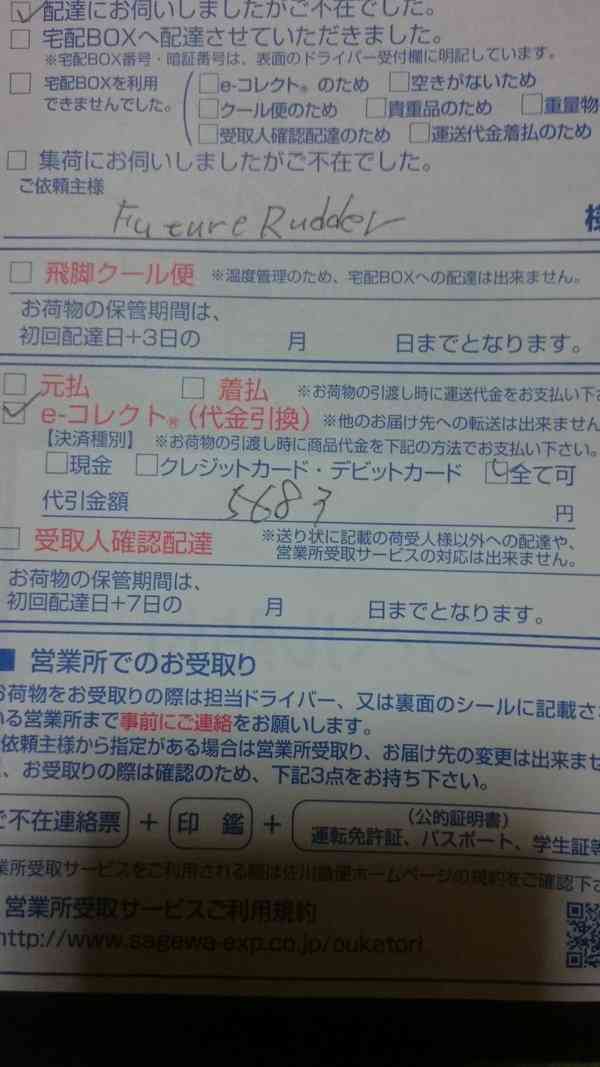 配達にお伺いしましたがご不在でした。
宅配BOXへ配達させていただきました。
※宅配BOX番号・暗証番号は、表面のドライバー受付欄に明記しています。
宅配BOXを利用できませんでした。
e-コレクト®のため 空きがないため
クール便のため 貴重品のため 重量物
受取人確認配達のため 運送代金着払のため
集荷にお伺いしましたがご不在でした。
ご依頼主様
Future Rudder 様
飛脚クール便 ※温度管理のため、宅配BOXへの配達は出来ません。
お荷物の保管期間は、
初回配達日+3日の 月 日までとなります。
元払 着払 ※お荷物の引渡し時に運送代金をお支払い下さ
e-コレクト®(代金引換) ※他のお届け先への転送は出来ません
【決済種別】 ※お荷物の引渡し時に商品代金を下記の方法でお支払い下さい。
現金 クレジットカード・デビットカード 全て可
代引金額 5683 円
受取人確認配達 ※送り状に記載の荷受人様以外への配達や、
営業所受取サービスの対応は出来ません。
お荷物の保管期間は、
初回配達日+7日の 月 日までとなります。
■ 営業所でのお受取り
お荷物をお受取りの際は担当ドライバー、又は裏面のシールに記載さ
いる営業所まで事前にご連絡をお願いします。
依頼主様から指定がある場合は営業所受取り、お届け先の変更は出来ませ
、お受取りの際は確認のため、下記3点をお持ち下さい。
ご不在連絡票 + 印 鑑 + (公的証明書)
運転免許証、パスポート、学生証等
業所受取サービスをご利用される際は佐川急便ホームページの規約をご確認下さ
営業所受取サービスご利用規約
http://www.sagawa-exp.co.jp/ouketori